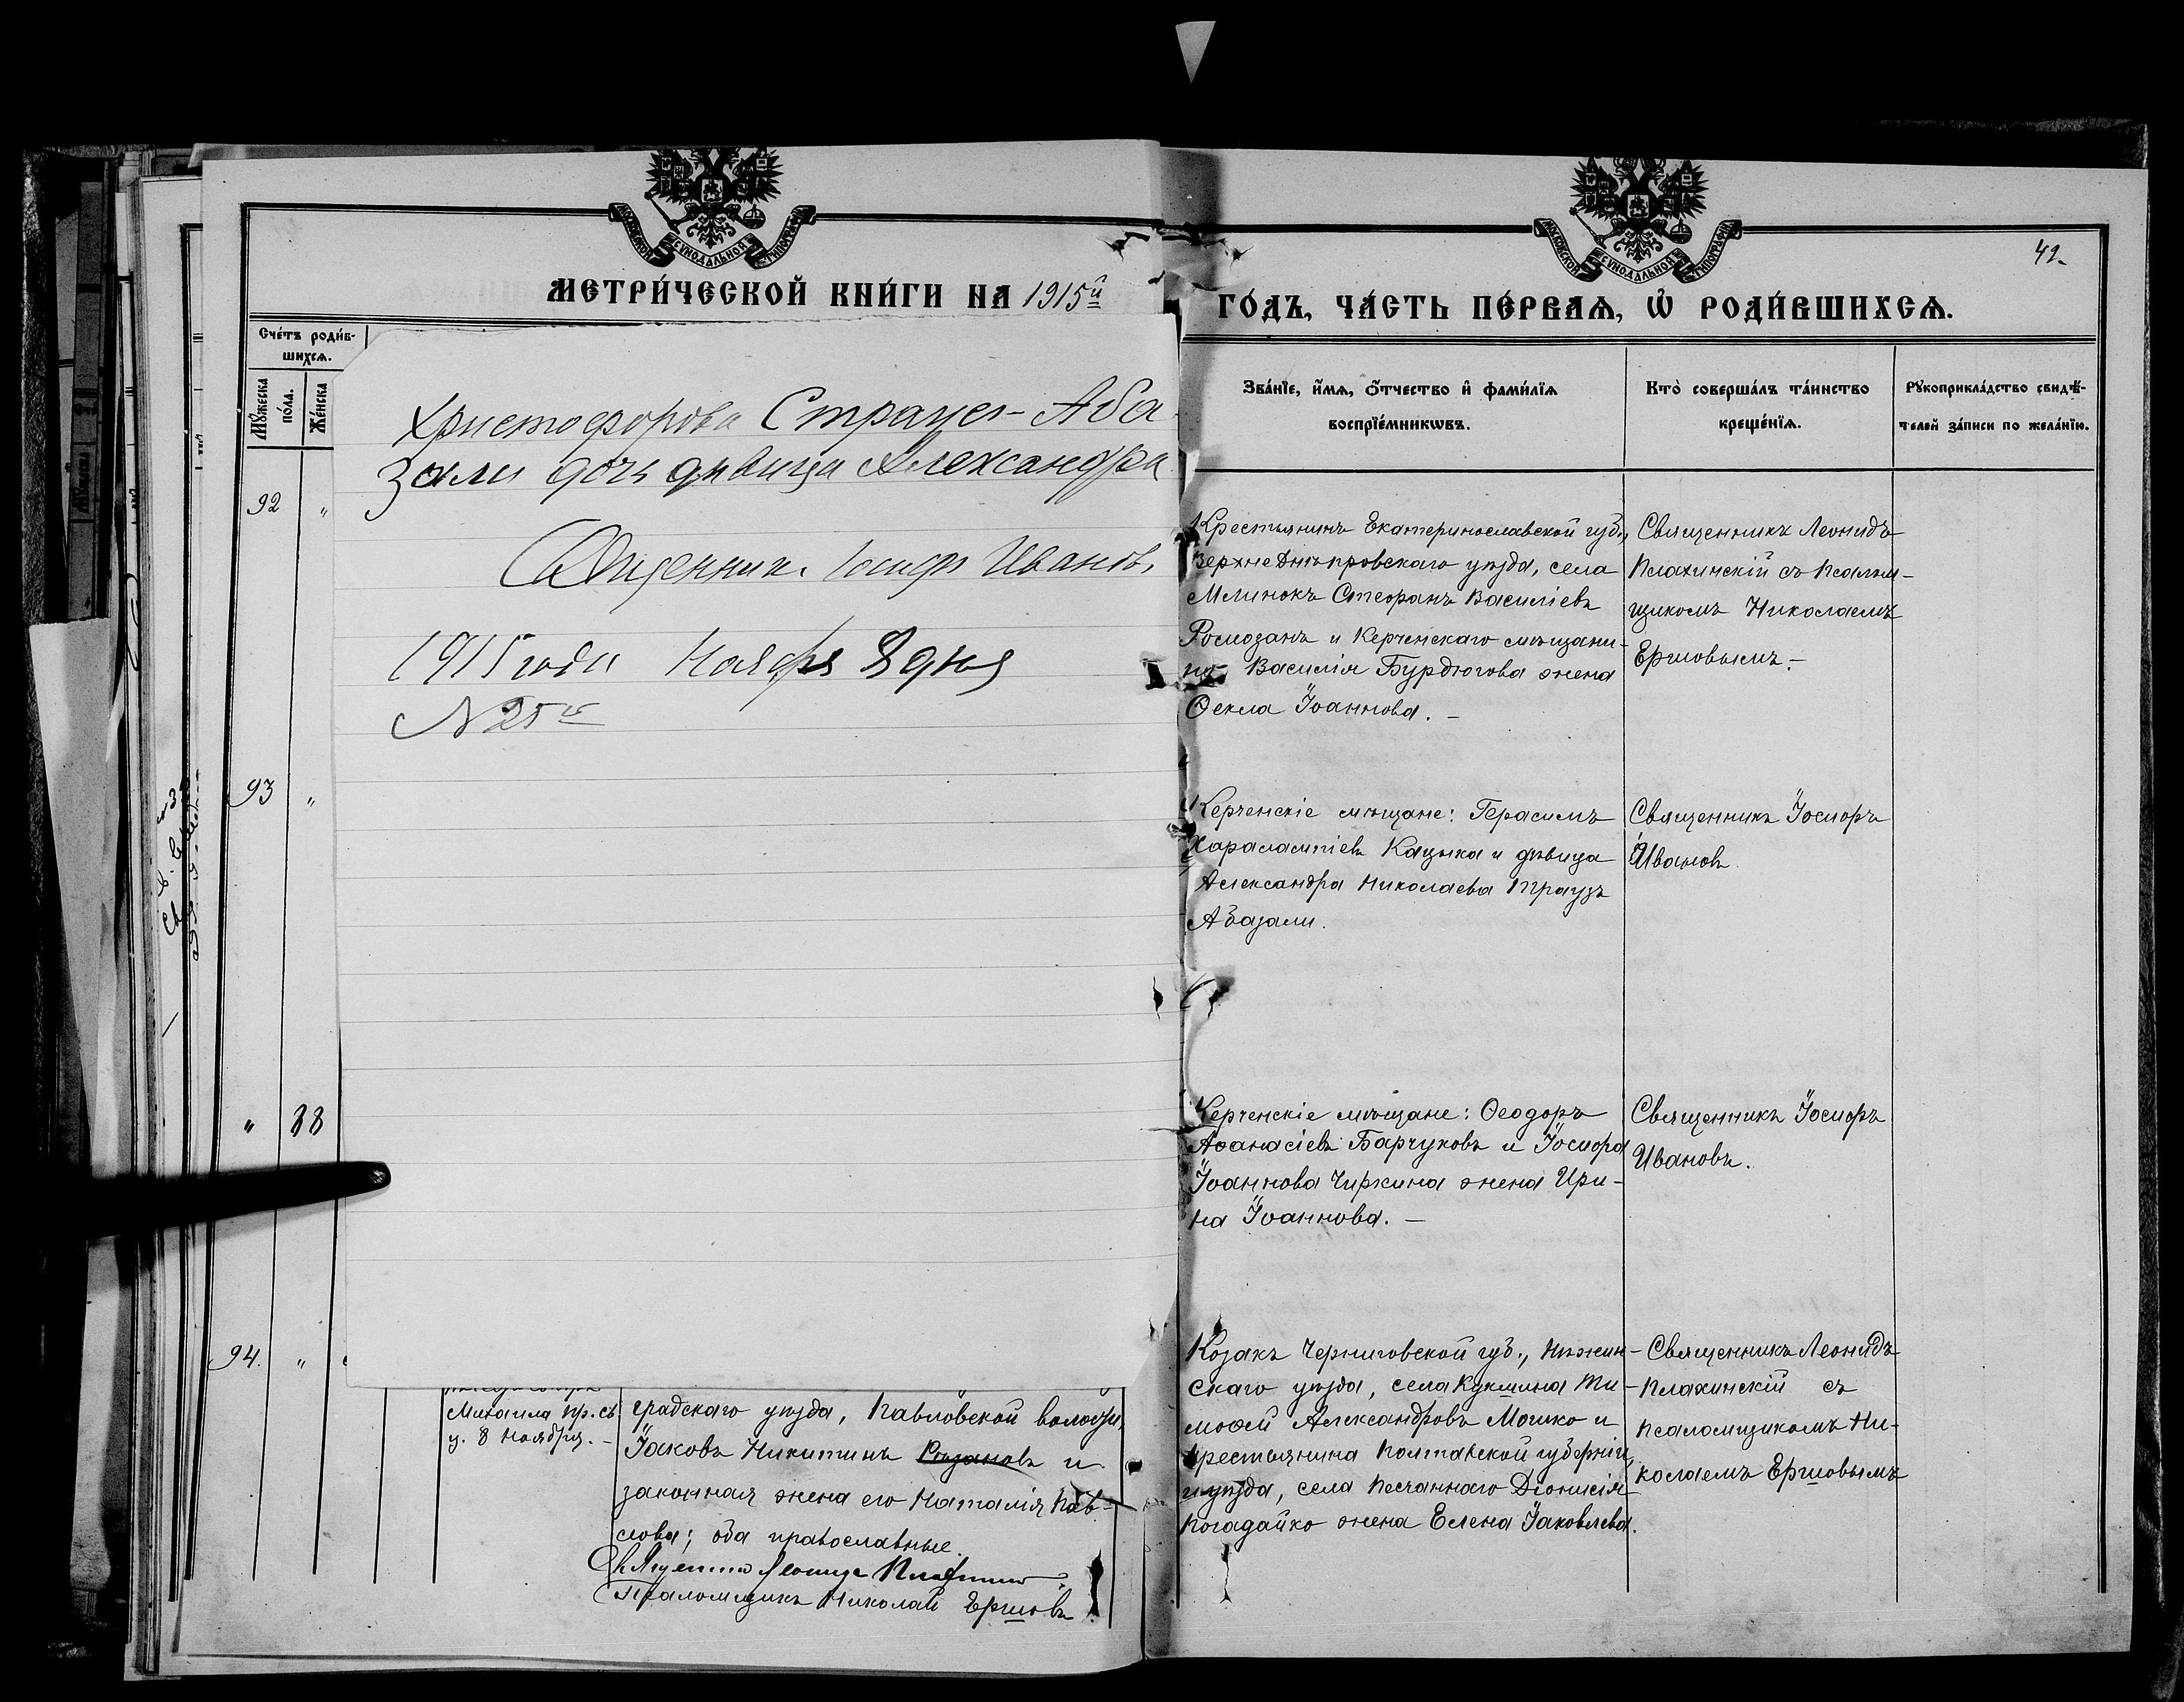 МОСКОВСКОЙ СѴНОДАЛЬНОЙ ТИПОГРАФІИ
МЕТРИ́ЧЕСКОЙ КНИ́ГИ НА 1915й
Сче́тъ роди́в-
шихсѧ.
Мꙋ́жеска
по́ла.
Же́нска
Христофорова Страцел-Аба
зали дочь девица Александра
Священник Іосиф Иванов.
1915 года Ноября 8 дня
№ 25
92 "
93 "
" 88
94. "
Михаила пр. св.
ц. 8 Ноября. -
градскаго уѣзда, Павловской волости,
Іаковъ Никитинъ Рязановъ и
законная жена его Наталія Пав-
лова; оба православные.
Священник Леонид Плахинский
Псаломщикъ Николай Ершовъ
МОСКОВСКОЙ СѴНОДАЛЬНОЙ ТИПОГРАФІИ
42.
ГО́ДЪ, ЧА́СТЬ ПЕ́РВАѦ, Ѡ҆ РОДИ́ВШИХСѦ.
Зва́нїе, и҆́мѧ, ѻ҆́тчество и҆ фами́лїѧ
воспрїе́мникѡвъ.
Кто̀ соверша́лъ та́инство
креще́нїѧ.
Рꙋкоприкла́дство свидѣ́-
телей за́писи по жела́нїю.
Крестьянинъ Екатеринославской губ.,
ВерхнеДнѣпровскаго уѣзда, села
Млинокъ Стефанъ Василіевъ
Ромозанъ и Керченскаго мѣщани-
на Василія Бурдюгова жена
Ѳекла Іоаннова. -
Священникъ Леонидъ
Плахинскій съ Псалом-
щикомъ Николаемъ
Ершовымъ. -
Керченскіе мѣщане: Герасимъ
Харалампіевъ Кацыка и дѣвица
Александра Николаева Трауцъ
Абазали.
Священникъ Іосифъ
Ивановъ
Керченскіе мѣщане: Ѳеодоръ
Аѳанасіевъ Барчуковъ и Іосифа
Іоаннова Чиркина жена Ири-
на Іоаннова. -
Священникъ Іосифъ
Ивановъ.
Козакъ Черниговской губ., Нѣжин-
скаго уѣзда, села Кукшина Ти-
моѳей Александровъ Мошко и
крестьянина Полтавской губерніи
и уѣзда, села Песчаннаго Діонисія
Погадайко жена Елена Іаковлева.
Священникъ Леонидъ
Плахинскій съ
псаломщикомъ Ни-
колаемъ Ершовымъ